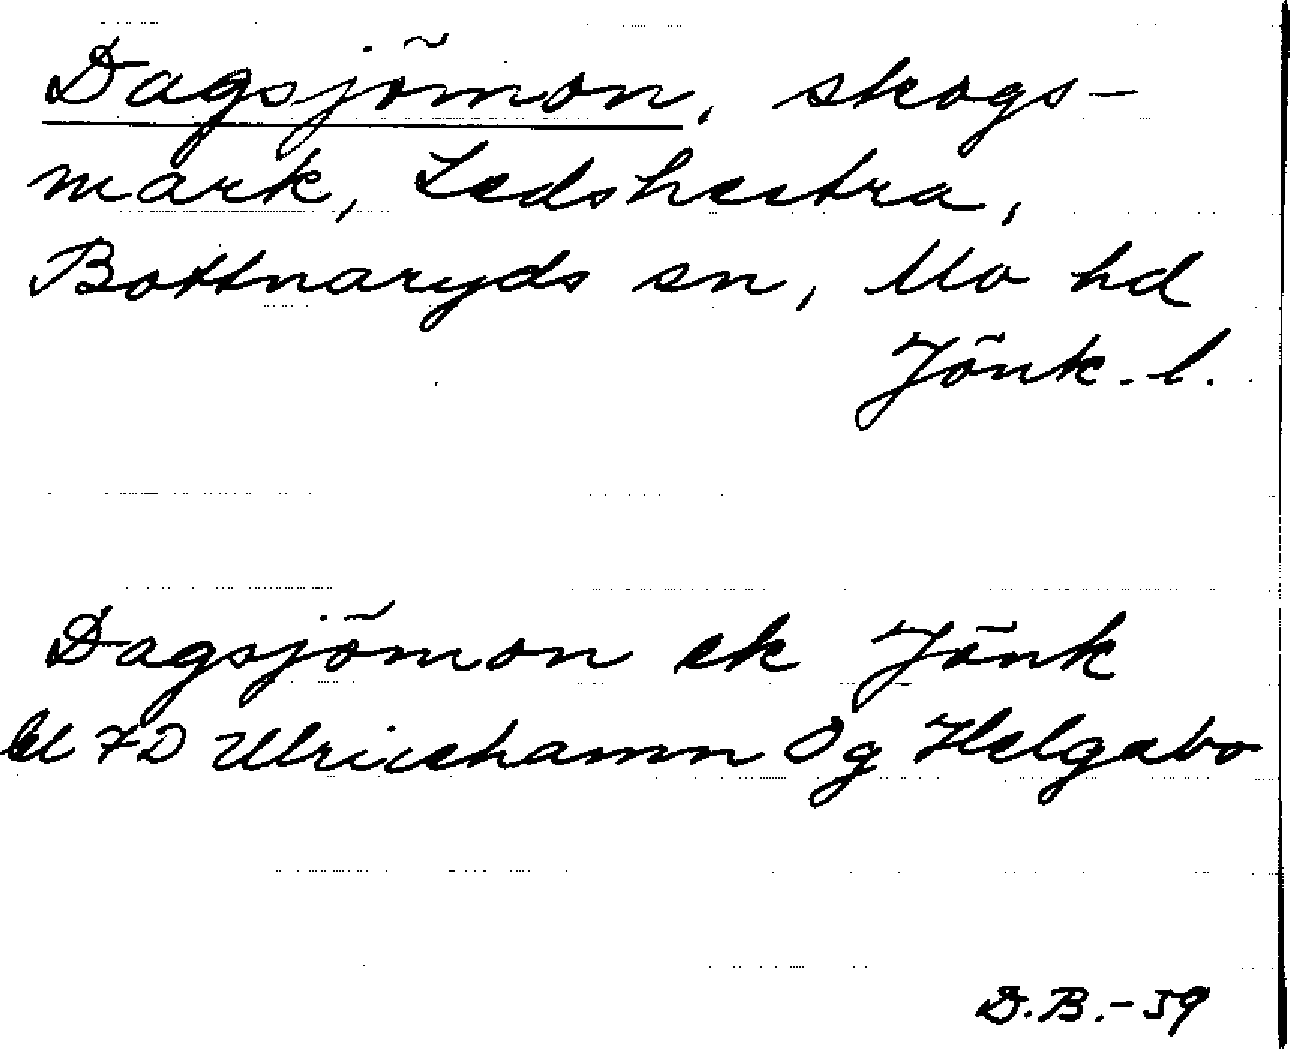 Dagsjömon, skogs-
mark, Ledshestra,
Bottnaryds sn, Mo hd
Jönk. l.
Dagsjömon ek Jönk
7D Ulricehamn Og Helgabo
D.B.-59